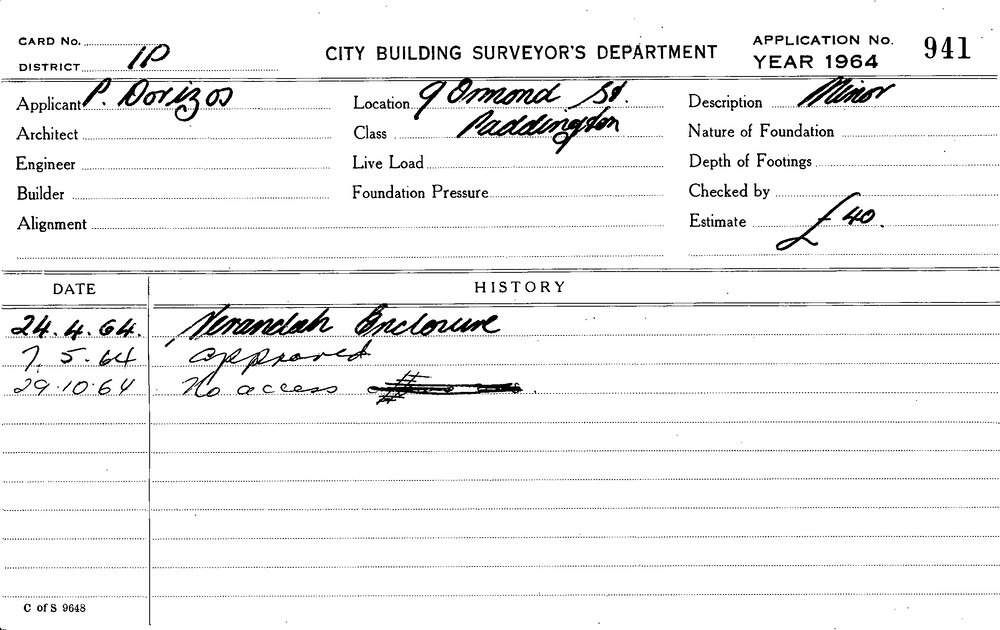 CARD No.
DISTRICT 1P
CITY BUILDING SURVEYOR'S DEPARTMENT
APPLICATION No. 941
YEAR 1964
Applicant P. Dorizos
Location 9 Ormond St.
Description Minor
Architect
Class Paddington
Nature of Foundation
Engineer
Live Load
Depth of Footings
Builder
Foundation Pressure
Checked by
Alignment
Estimate £40.
DATE HISTORY
24.4.64. Verandah Enclosure
7.5.64 approved
29.10.64 No access
C of S 9648